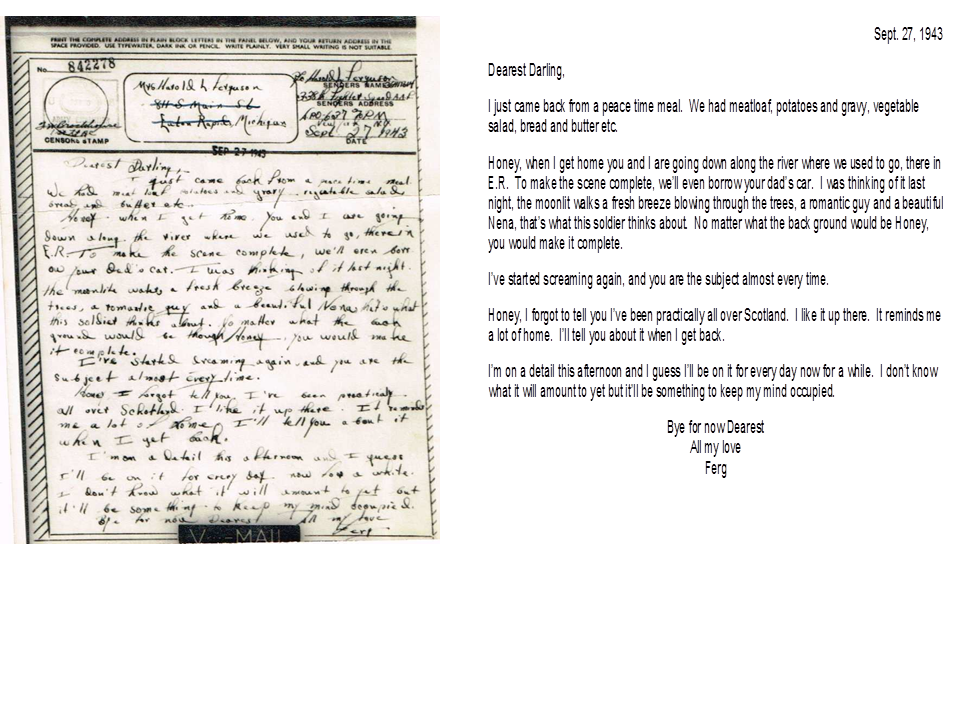 PRINT THE COMPLETE ADDRESS IN PLAIN BLOCK LETTERS IN THE PANEL BELOW, AND YOUR RETURN ADDRESS IN THE
SPACE PROVIDED. USE TYPEWRITER, DARK INK OR PENCIL. WRITE PLAINLY. VERY SMALL WRITING IS NOT SUITABLE.
No. 842278
Mrs Harold L Ferguson
811 S Main St
Eaton Rapids, Michigan
CENSOR'S STAMP
Harold L Ferguson
SENDER'S NAME
SENDER'S ADDRESS
Sept 27 1943
DATE
SEP 27 1943
Dearest Darling,
I just came back from a peace time meal.
We had meat loaf potatoes and gravy, vegetable salad,
bread and butter etc.
Honey, when I get home, you and I are going
down along the river where we used to go, there in
E.R. To make the scene complete, we'll even borr
ow your Dad's car. I was thinking of it last night.
the moonlite walks, a fresh breeze blowing through the
trees, a romantic guy and a beautiful Nena that's what
this soldier thinks about. No matter what the back
ground would be though Honey, you would make
it complete.
I've started dreaming again, and you are the
subject almost every time.
Honey I forgot tell you, I've been practically
all over Schotland. I like it up there. It reminds
me a lot of home. I'll tell you about it
when I get back.
I'm on a detail this afternoon and I guess
I'll be on it for every day now for a while.
I don't know what it will amount to yet but
it'll be something to keep my mind occupied.
Bye for now Dearest All my love
Ferg
V-MAIL
Sept. 27, 1943
Dearest Darling,
I just came back from a peace time meal. We had meatloaf, potatoes and gravy, vegetable
salad, bread and butter etc.
Honey, when I get home you and I are going down along the river where we used to go, there in
E.R. To make the scene complete, we'll even borrow your dad's car. I was thinking of it last
night, the moonlit walks a fresh breeze blowing through the trees, a romantic guy and a beautiful
Nena, that's what this soldier thinks about. No matter what the back ground would be Honey,
you would make it complete.
I've started screaming again, and you are the subject almost every time.
Honey, I forgot to tell you I've been practically all over Scotland. I like it up there. It reminds me
a lot of home. I'll tell you about it when I get back.
I'm on a detail this afternoon and I guess I'll be on it for every day now for a while. I don't know
what it will amount to yet but it'll be something to keep my mind occupied.
Bye for now Dearest
All my love
Ferg